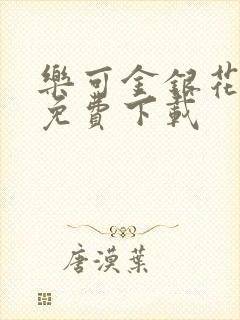 樂可金銀花
免費下載
唐漠葉